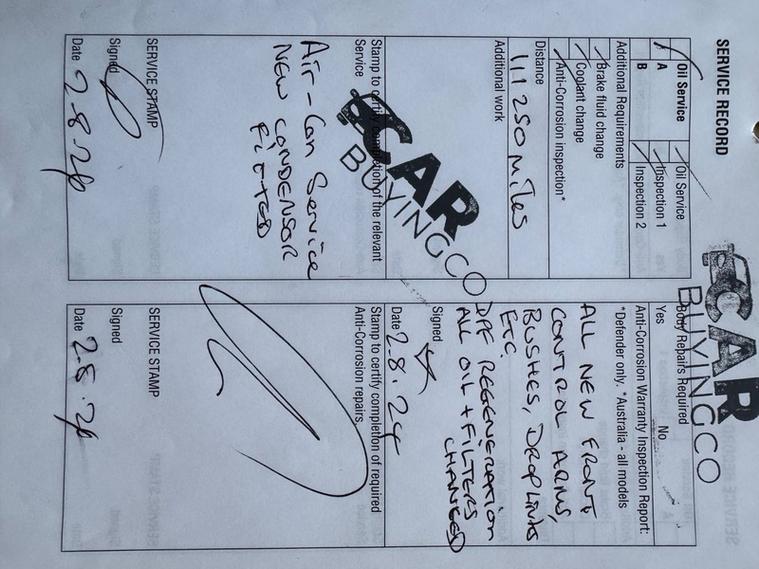 SERVICE RECORD
Oil Service
Oil Service
A
Inspection 1
B
Inspection 2
Additional Requirements
Brake fluid change
Coolant change
Anti-Corrosion inspection*
Distance
111250 MILES
Additional work
CAR
BUYINGCO
Stamp to certify completion of the relevant
Service
Air-Con Service
NEW CONDENSOR
FITTED
SERVICE STAMP
Signed
Date 2-8-24
CAR
BUYINGCO
Body Repairs Required
Yes No
Anti-Corrosion Warranty Inspection Report:
*Defender only. *Australia - all models
ALL NEW FRONT
CONTROL ARMS,
BUSHES, DROPLINKS
ETC.
DPF REGENERATION
ALL OIL + FILTERS
CHANGED
Signed
Date 2-8.24
Stamp to certify completion of required
Anti-Corrosion repairs.
SERVICE STAMP
Signed
Date 2.8.24